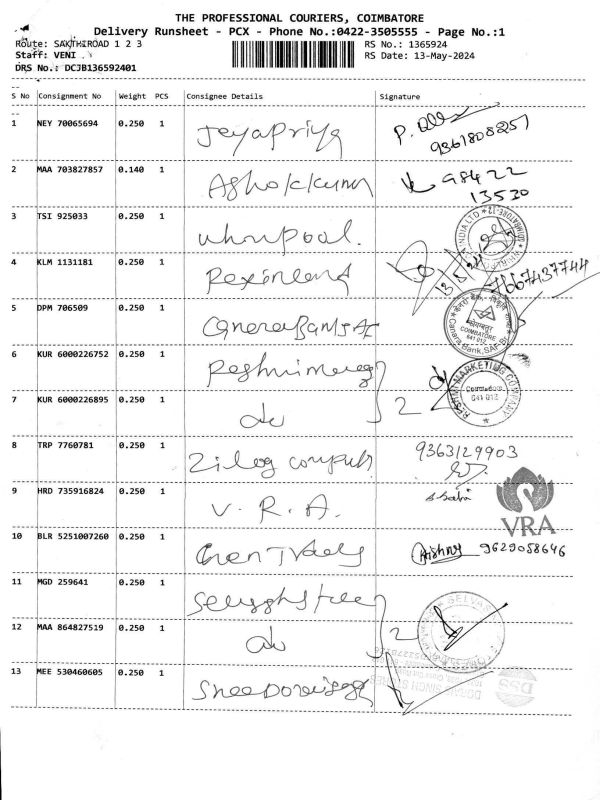 THE PROFESSIONAL COURIERS, COIMBATORE
Delivery Runsheet - PCX - Phone No.:0422-3505555 - Page No.:1
Route: SAKTHIROAD 1 2 3 RS No.: 1365924
Staff: VENI . RS Date: 13-May-2024
DRS No.: DCJB136592401
S No Consignment No Weight PCS Consignee Details Signature
1 NEY 70065694 0.250 1 Jeyapriya P. 9361808257
2 MAA 703827857 0.140 1 Ashokkumar 98422
13530
3 TSI 925033 0.250 1 INDIA LTD COIMBATORE-12
4 KLM 1131181 0.250 1 13/5/24 7667437744
5 DPM 706509 0.250 1 Canara Bank, SAF
COIMBATORE
641 012
6 KUR 6000226752 0.250 1
7 KUR 6000226895 0.250 1 do 2 RESHMI MARKETING COMPANY
Coimbatore
641 012
8 TRP 7760781 0.250 1 Zilog 9363129903
9 HRD 735916824 0.250 1 V. R. A. VRA
10 BLR 5251007260 0.250 1 9629058646
11 MGD 259641 0.250 1
12 MAA 864827519 0.250 1 do 2
13 MEE 530460605 0.250 1 DSS